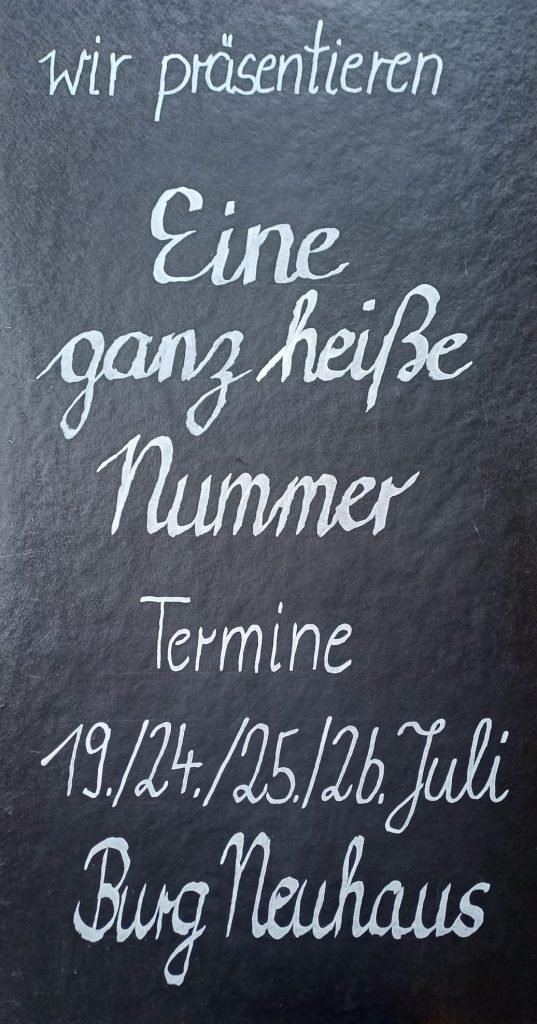 wir präsentieren
Eine
ganz heiße
Nummer
Termine
19./24./25./26. Juli
Burg Neuhaus